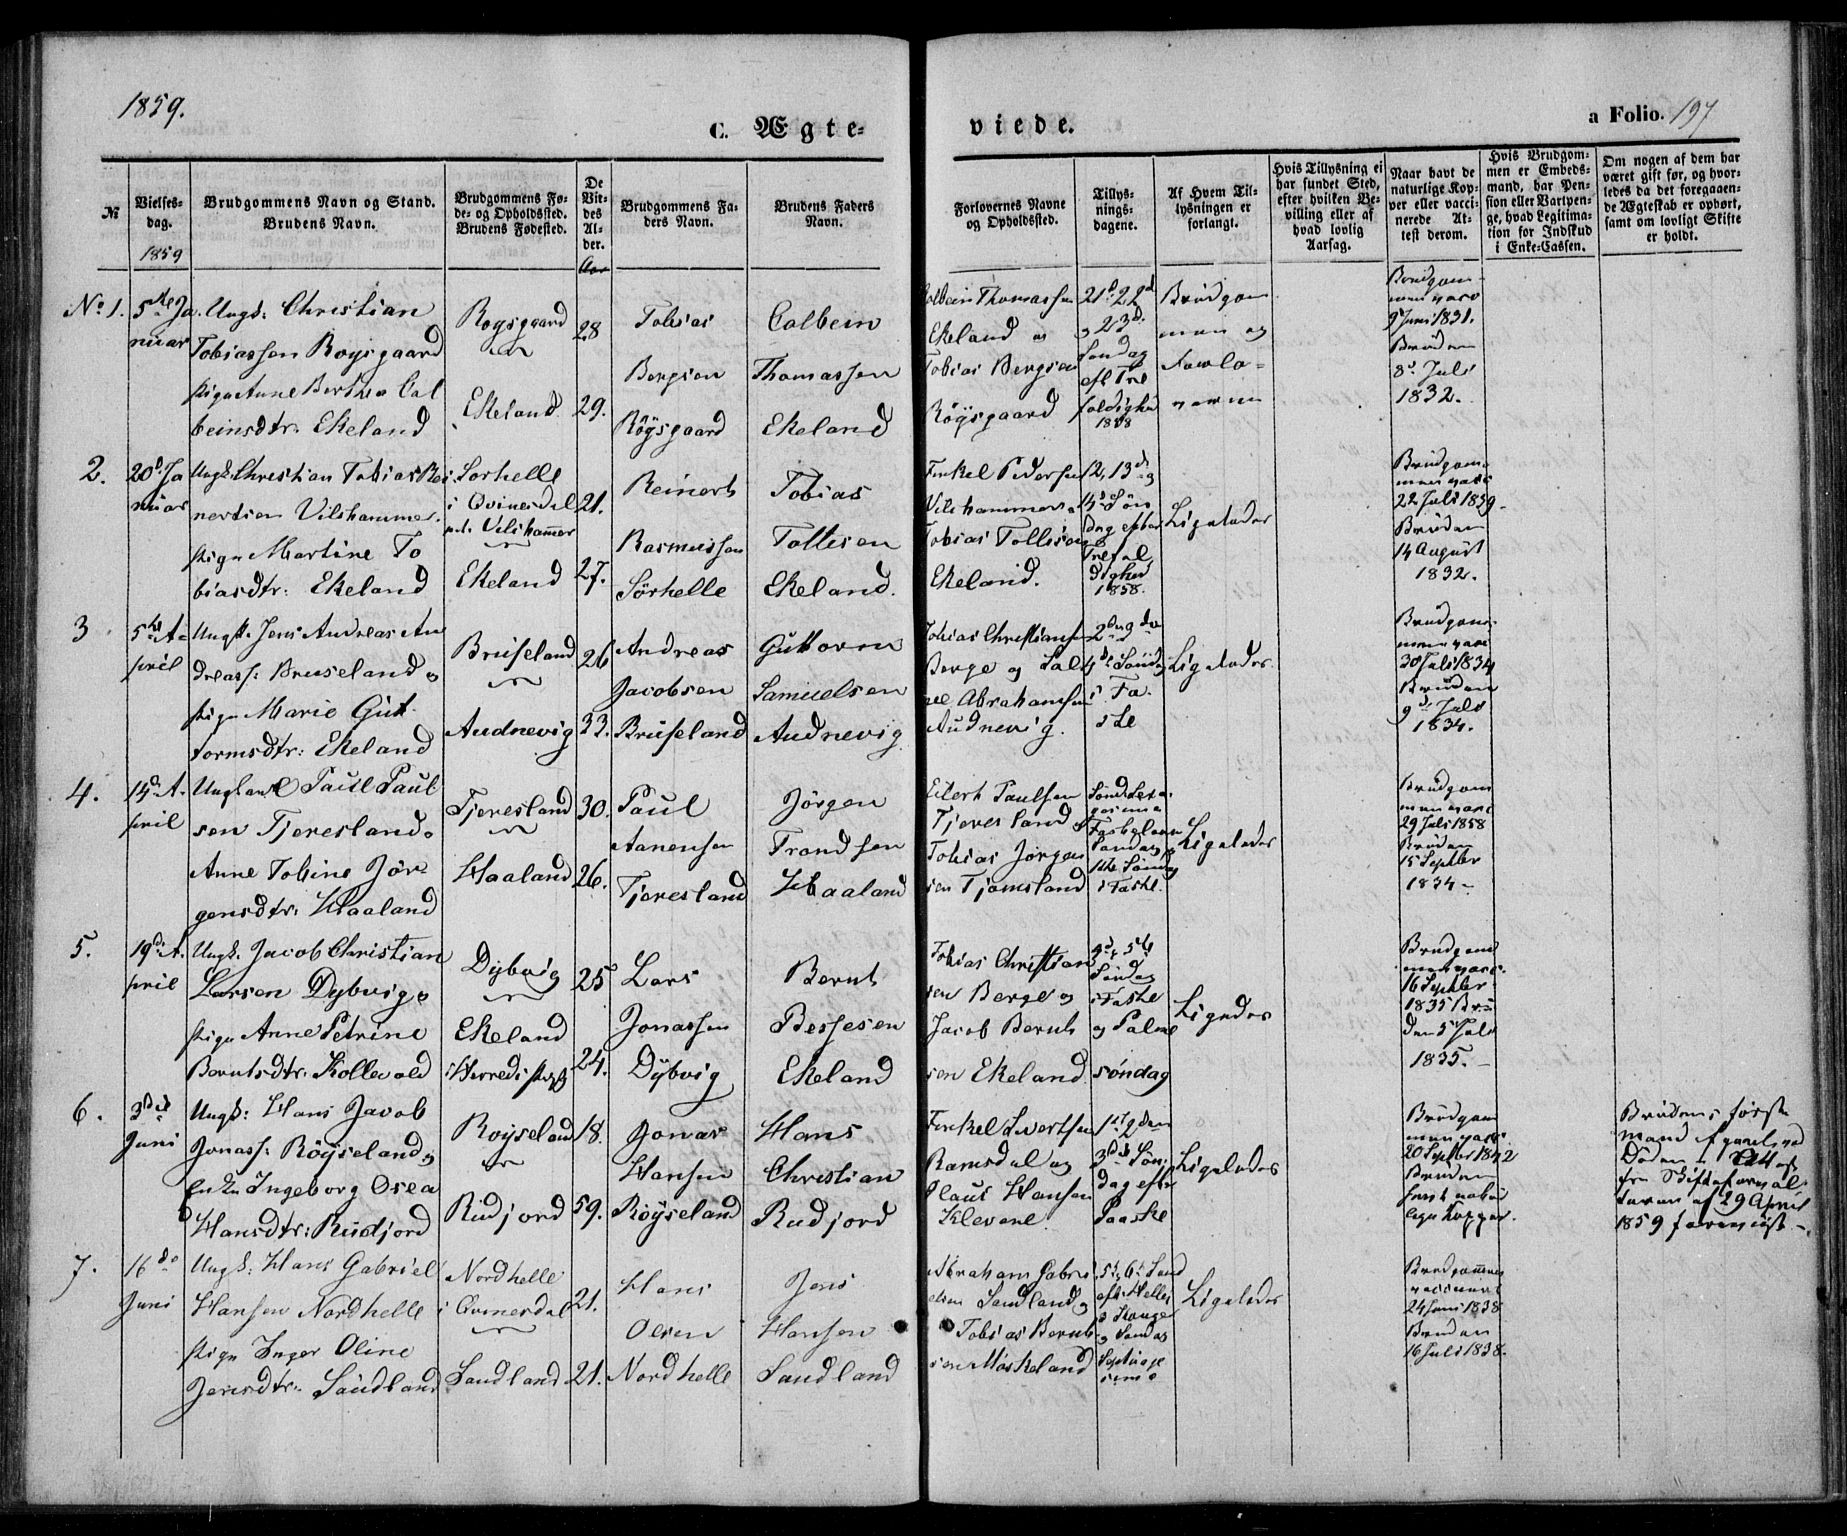 1859.
C. Ægte-
viede.
a Folio. 197
No
Vielses-
dag.
1859
Brudgommens Navn og Stand.
Brudens Navn.
Brudgommens Fø-
de- og Opholdssted.
Brudens Fødested.
De
Vi-
des
Al-
der.
Aar
Brudgommens Fa-
ders Navn.
Brudens Faders
Navn.
Forlovernes Navne
og Opholdssted.
Tillys-
nings-
dagene.
Af Hvem Til-
lysningen er
forlangt.
Hvis Tillysning ei
har fundet Sted,
efter hvilken Be-
villing eller af
hvad lovlig
Aarsag.
Naar havt de
naturlige Kop-
per eller vacci-
nerede At-
test derom.
Hvis Brudgom-
men er Embeds-
mand, har Pen-
sion eller Vartpen-
ge, hvad Legitima-
tion for Indskud
i Enke-Cassen.
Om nogen af dem har
været gift før, og hvor-
ledes da det foregaaen-
de Ægteskab er ophørt,
samt om lovligt Skifte
er holdt.
No 1.
5te Ja
nuar
Ungk: Christian
Tobiassen Roysgaard
Pige Anne Berthe Col
beinsdtr: Ekeland
Roysgaard
Ekeland
28
29.
Tobias
Bergsen
Røysgaard
Colbein
Thomassen
Ekeland
Colbein Thomassen
Ekeland og
Tobias Bergsen
Røysgaard
21d 22d
og 23d
Søndag
eft Tre
foldighed
1858
Brudgom
men og
Forlo-
verne
Brudgom-
men vacc
9 Juni 1831.
Bruden
8d Juli
1832.
2.
20d Ja
nuar
Ungk Christian Tobias Rei
nertsen Vilshammer.
Pige Martine To
biasdtr: Ekeland
Sørhelle
i Qvinesdal
Vilshammer
Ekeland
21.
27.
Reinert
Rasmussen
Sørhelle
Tobias
Tollisen
Ekeland.
Tinkel Pedersen
Vilshammer
Tobias Tollisen
Ekeland.
12, 13d og
14d Søn
dag efter
Trefol
dighed
1858.
Ligeledes
Brudgom-
men vacc
22 Juli 1839.
Bruden
14 August
1832.
3
5te A-
pril
Ungk. Jens Andreas An
dreass: Bruseland og
Pige Marie Gut
tormsdtr: Ekeland
Bruseland
Audnevig
26
33.
Andreas
Jacobsen
Bruseland
Guttorm
Samuelsen
Audnevig
Tobias Christiansen
Berge og Sal
Abrahamsen
Audnevig.
2den 3die
4de Søndag
i Fa
ste
Ligeledes.
Brudgom-
men vacc
30 Juli 1834
Bruden
9d Juli
1834.
4.
14d A-
pril
Ungkarl Paul Paul
sen Tjeresland og
Anne Tobine Jør
gensdtr: Haaland
Tjeresland
Haaland
30.
26.
Paul
Aanensen
Tjeresland
Jørgen
Trondsen
Haaland
Eilert Paulsen
Tjeresland og
Tobias Jørgen
sen Tjomsland
Fastelavn
Søndag
1ste Søndag
i Faste.
Ligeledes
Brudgom
men vacc
29 Juli 1858
Bruden
15 Septbr
1834
5.
19d A-
pril
Ungk. Jacob Christian
Larsen Dybvig og
Pige Anne Petrine
Berntsdtr: Kollevold
Dybvig
Ekeland
i Herred
25
24.
Lars
Jonassen
Dybvig
Bernt
Bessesen
Ekeland
Tobias Christian
sen Berge og
Jacob Bernt
sen Ekeland
Søndag
i Faste
og Palme
søndag
Ligeledes
Brudgom
men vacc
16 Septbr
1835 Bru
den 5 Juli
1835.
6.
3die
Juni
Ungk: Hans Jacob
Jonass: Røyseland og
Enke Ingeborg Osea
Hansdtr: Rudjord
Royseland
Rudjord
18.
59.
Jonas
Hansen
Røyseland
Hans
Christian
Rudjord
Tinkel Ivertsen
Ramsdal og
Claus Hansen
Klevene.
1ste 2den
3die Søn
dag efter
Paaske
Ligeledes
Brudgom
men vacc
20 Septbr 1842
Bruden
havt natur
lige Kopper.
Brudens første
Mand afgaaet ved
Døden. Attest
fra Skifteforval
teren af 29 April
1859 forevist
7.
16de
Juni
Ungk: Hans Gabriel
Hansen Nordhelle
Pige Inger Oline
Jensdtr: Sandland
Nordhelle
i Qvinesdal
Sandland
21.
21.
Hans
Olsen
Nordhelle
Jens
Hansen
Sandland
Abraham Gabri
elsen Sandland og
Tobias Bernt
sen Moskeland
5te 6te Sønd
eft Hellig
3 Konger
og Søndag
Septuage
sima
Ligeledes
Brudgommen
vaccineret
24 Juni 1838
Bruden
16 Juli 1838.